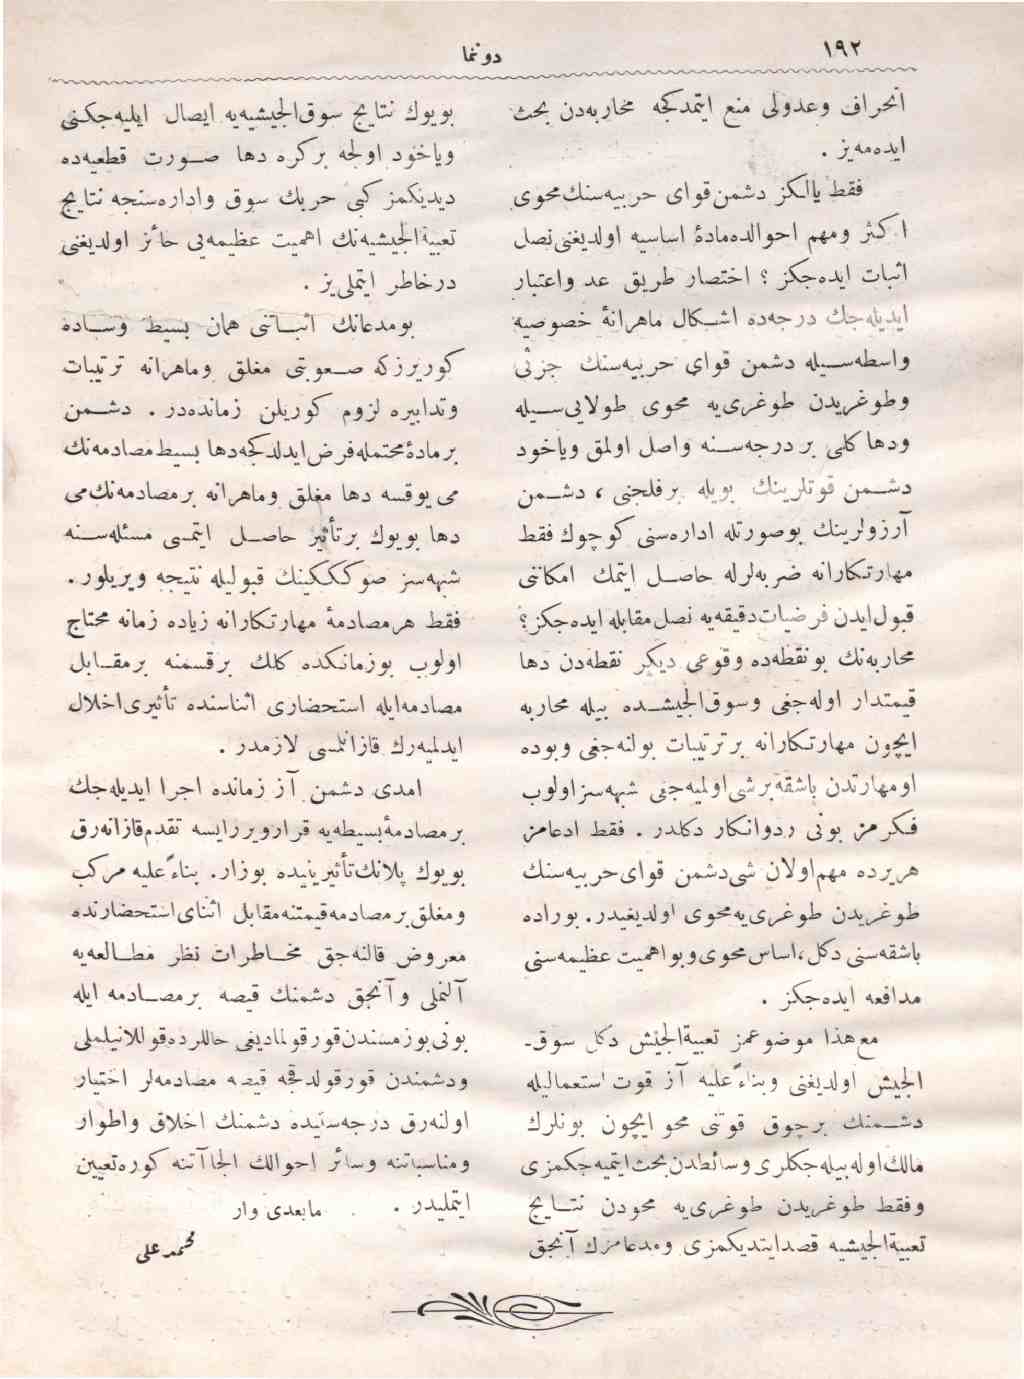 ١٩٢
دوننما
انحراف وعدولی منع ایتمدکجه محاربه‌دن بحث
ایده‌مه‌یز .
فقط یالکز دشمن قوای حربیه‌سنك محوی
اکثر ومهم احوالده مادۀ اساسیه اولدیغنی نصل
اثبات ایده‌جکز ؟ اختصار طریق عد واعتبار
ایدیله‌جك درجه‌ده اشـکال ماهرانۀ خصوصیه
واسطه‌سـیله دشمن قوای حربیه‌سنك جزئی
وطوغریدن طوغری‌یه محوی طولایی‌سـیله
ودها کلی بر درجه‌سـنه واصل اولمق ویاخود
دشـمن قوتلرینك بویله برفلجنی ، دشـمن
آرزولرینك بوصورتله اداره‌سنی کوچوك فقط
مهارتکارانه ضربه‌لرله حاصـل ایتمك امکاننی
قبول ایدن فرضیات دقیقه‌یه نصل مقابله ایده‌جکز؟
محاربه‌نك بو نقطه‌ده وقوعی دیکر نقطه‌دن دها
قیمتدار اوله‌جغی وسوق‌الجیشـده بیله محاربه
ایچون مهارتکارانه بر ترتیبات بولنه‌جغی وبوده
او مهارتدن باشقه برشی اولمیه‌جغی شبهه‌سز اولوب
فکرمز بونی ردوانکار دکلدر . فقط ادعامز
هریرده مهم اولان شی دشمن قوای حربیه‌سنك
طوغریدن طوغری‌یه محوی اولدیغیدر. بوراده
باشقه‌سنی دکل، اساس محوی وبو اهمیت عظیمه‌سنی
مدافعه ایده‌جکز .
مع‌هذا موضوعمز تعبیة‌الجیش دکل سوق-
الجیش اولدیغنی وبناءً علیه آز قوت استعمالیله
دشـمنك برچوق قوتنی محو ایچون بونلرك
مالك اوله‌بیله‌جکلری وسائطدن بحث ایتمیه‌جکمزی
وفقط طوغریدن طوغری‌یه محودن نتـایج
تعبیة‌الجیشیه قصد ایتدیکمزی ومدعامزك آنجق
بویوك نتایج سوق‌الجیشیه‌یه ایصال ایلیه‌جکنی
ویاخود اولجه برکره دها صـورت قطعیه‌ده
دیدیکمز کبی حربك سوق واداره‌سنجه نتایج
تعبیة‌الجیشیه‌نك اهمیت عظیمه‌یی حائز اولدیغنی
درخاطر ایتملی‌یز .
بومدعانك اثبـاتنی همان بسیط وسـاده
کوریرزکه صـعوبتی مغلق وماهرانه ترتیبات
وتدابیره لزوم کوریلن زمانده‌در . دشـمن
برمادۀ محتمله فرض ایدلدکجه دها بسیط مصادمه‌نك
می یوقسه دها مغلق وماهرانه برمصادمه‌نك می
دها بویوك برتأثیر حاصـل ایتمـی مسئله‌سـنه
شبهه‌سز صوککینك قبولیله نتیجه ویریلور.
فقط هرمصادمۀ مهارتکارانه زیاده زمانه محتاج
اولوب بوزمانکده کلك برقسمنه برمقـابل
مصادمه‌ایله استحضاری اثناسنده تأثیری اخلال
ایدلمیه‌رك قازانلمسی لازمدر .
امدی دشمن آز زمانده اجرا ایدیله‌جك
برمصادمۀ بسیطه‌یه قرار ویررایسه تقدم قازانه‌رق
بویوك پلانك تأثیرینیده بوزار. بناءً علیه مرکب
ومغلق برمصادمه قیمتنه مقابل اثنای استحضارنده
معروض قالنه‌جق مخـاطرات نظر مطـالعه‌یه
آلنملی وآنجق دشمنك قیصه برمصـادمه ایله
بونی بوزمسندن قورقولمادیغی حاللرده قوللانیلملی
ودشمندن قورقولدقجه قیصه مصادمه‌لر اختیار
اولنه‌رق درجه‌سنیده دشمنك اخلاق واطوار
ومناسباتنه وسائر احوالك الجاآتنه کوره تعیین
ایتملیدر .
مابعدی وار
محمد علی